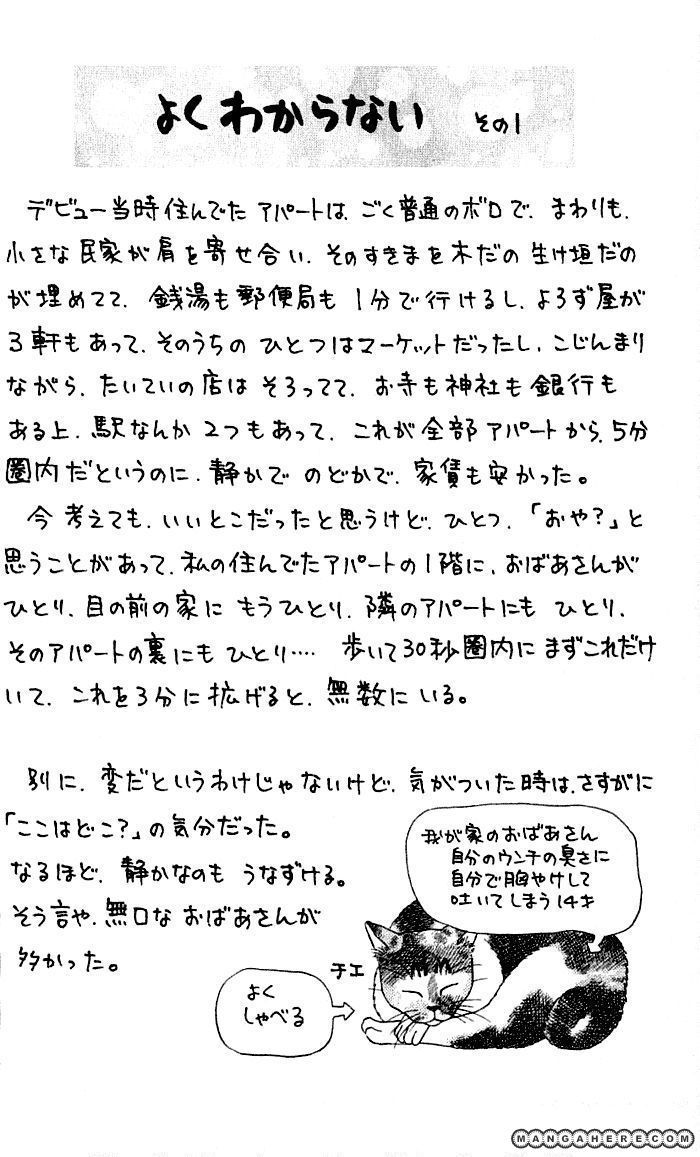 よくわからない その1
デビュー当時住んでたアパートは、ごく普通のボロで、まわりも、
小さな民家が肩を寄せ合い、そのすきまを木だの生け垣だの
が埋めてて、銭湯も郵便局も1分で行けるし、よろず屋が
3軒もあって、そのうちのひとつはマーケットだったし、こじんまり
ながら、たいていの店はそろってて、お寺も神社も銀行も
ある上、駅なんか2つもあって、これが全部アパートから、5分
圏内だというのに、静かでのどかで、家賃も安かった。
今考えても、いいとこだったと思うけど、ひとつ、「おや?」と
思うことがあって、私の住んでたアパートの1階に、おばあさんが
ひとり、目の前の家にもうひとり、隣のアパートにもひとり、
そのアパートの裏にもひとり…… 歩いて30秒圏内にまずこれだけ
いて、これを3分に拡げると、無数にいる。
別に、変だというわけじゃないけど、気がついた時は、さすがに
「ここはどこ?」の気分だった。
なるほど、静かなのもうなずける。
そう言や、無口なおばあさんが
多かった。
我が家のおばあさん
自分のウンチの臭さに
自分で胸やけして
吐いてしまう14才
チエ
よく
しゃべる
MANGAHERE.COM